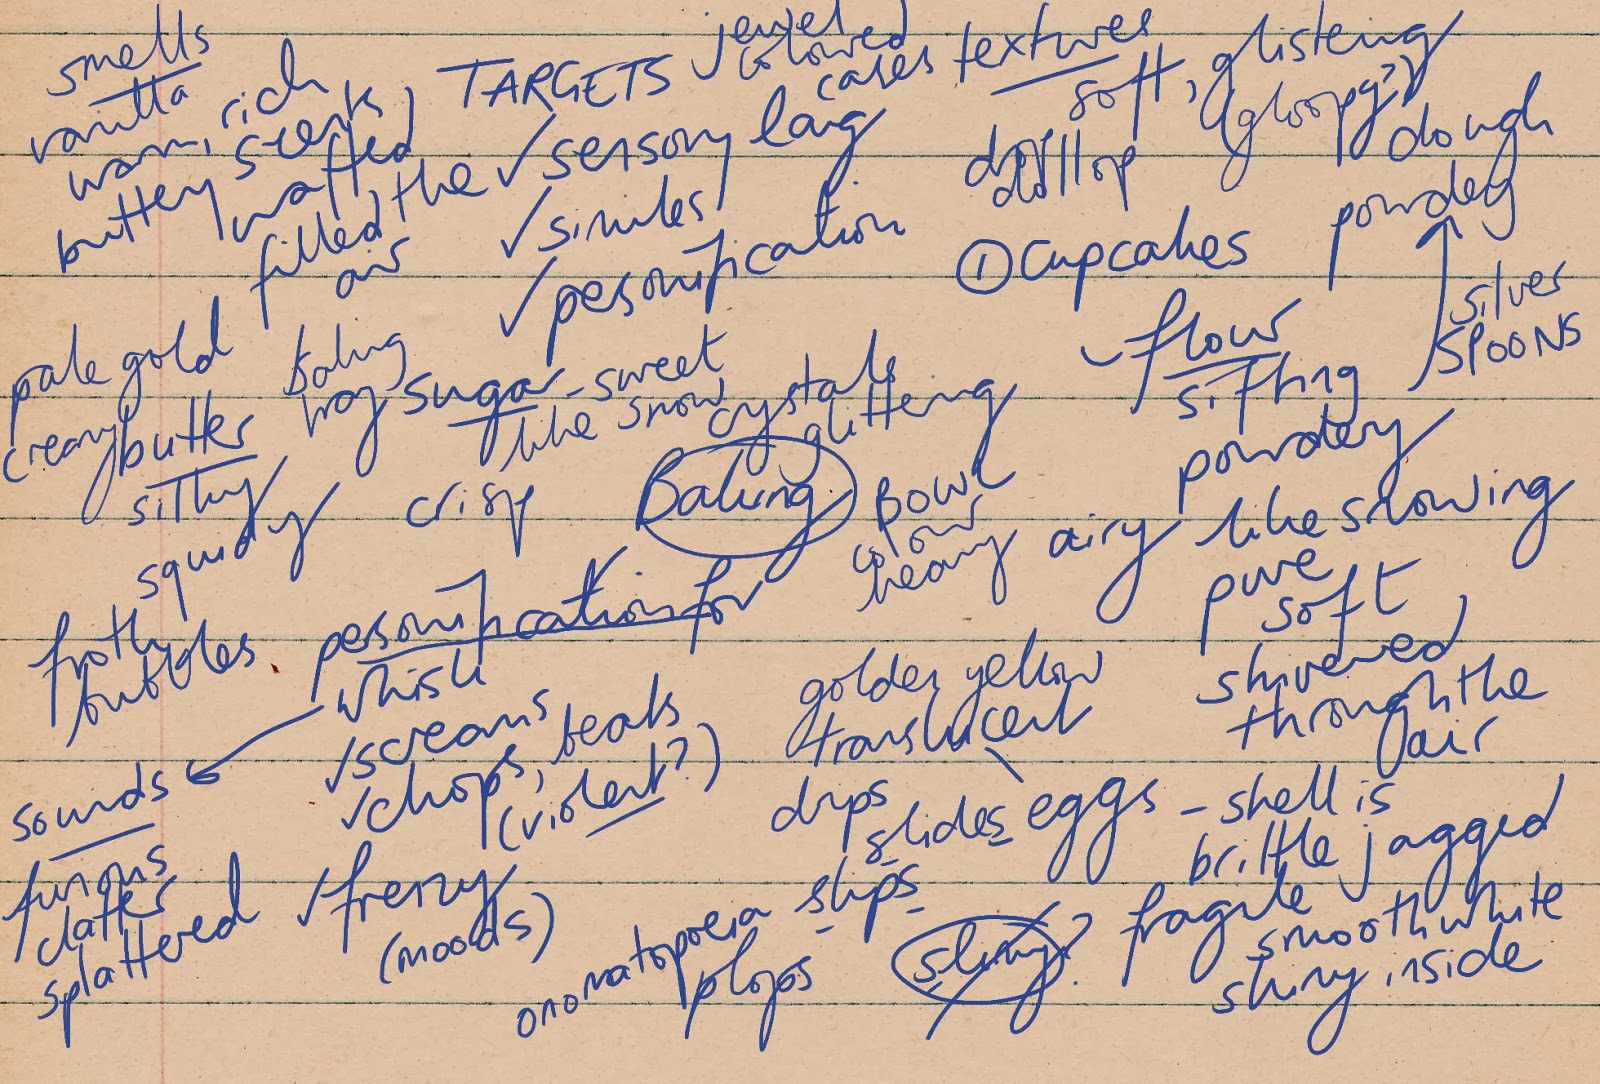 smells
vanilla
warm, rich
buttery scents
wafted
filled the
air
TARGETS
✓ sensory lang
✓ similes
✓ personification
jewel
coloured
cases
textures
soft, glistening
(gloopy?)
dollop
dough
powdery
① cupcakes
silver
SPOONS
pale gold
creamy
butter
silky
squidgy
baking
tray
sugar - sweet
like snow
crystals
glittering
crisp
Baking
BOWL
colour
heavy
- flour
sifting
powdery
airy
like snowing
pure
soft
shivered
through the
air
frothy
bubbles
personification for
whisk
✓ screams
✓ chops, beats
(violent?)
✓ frenzy
(moods)
sounds
furious
clatter
splattered
golden yellow
translucent
drips
slides
slips
onomatopoeia
plops
eggs - shell is
brittle jagged
fragile
smooth white
shiny inside
slimy?